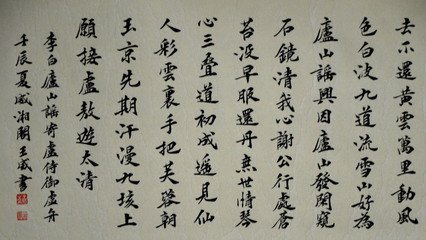 去不還黄雲萬里動風
色白波九道流雪山好為
廬山謡興因廬山發閒窺
石鏡清我心謝公行處蒼
苔没早服還丹無世情琴
心三叠道初成遥見仙
人彩雲裏手把芙蓉朝
玉京先期汗漫九垓上
願接盧敖遊太清
李白廬山謡寄盧侍御虚舟
壬辰夏湘閣王書